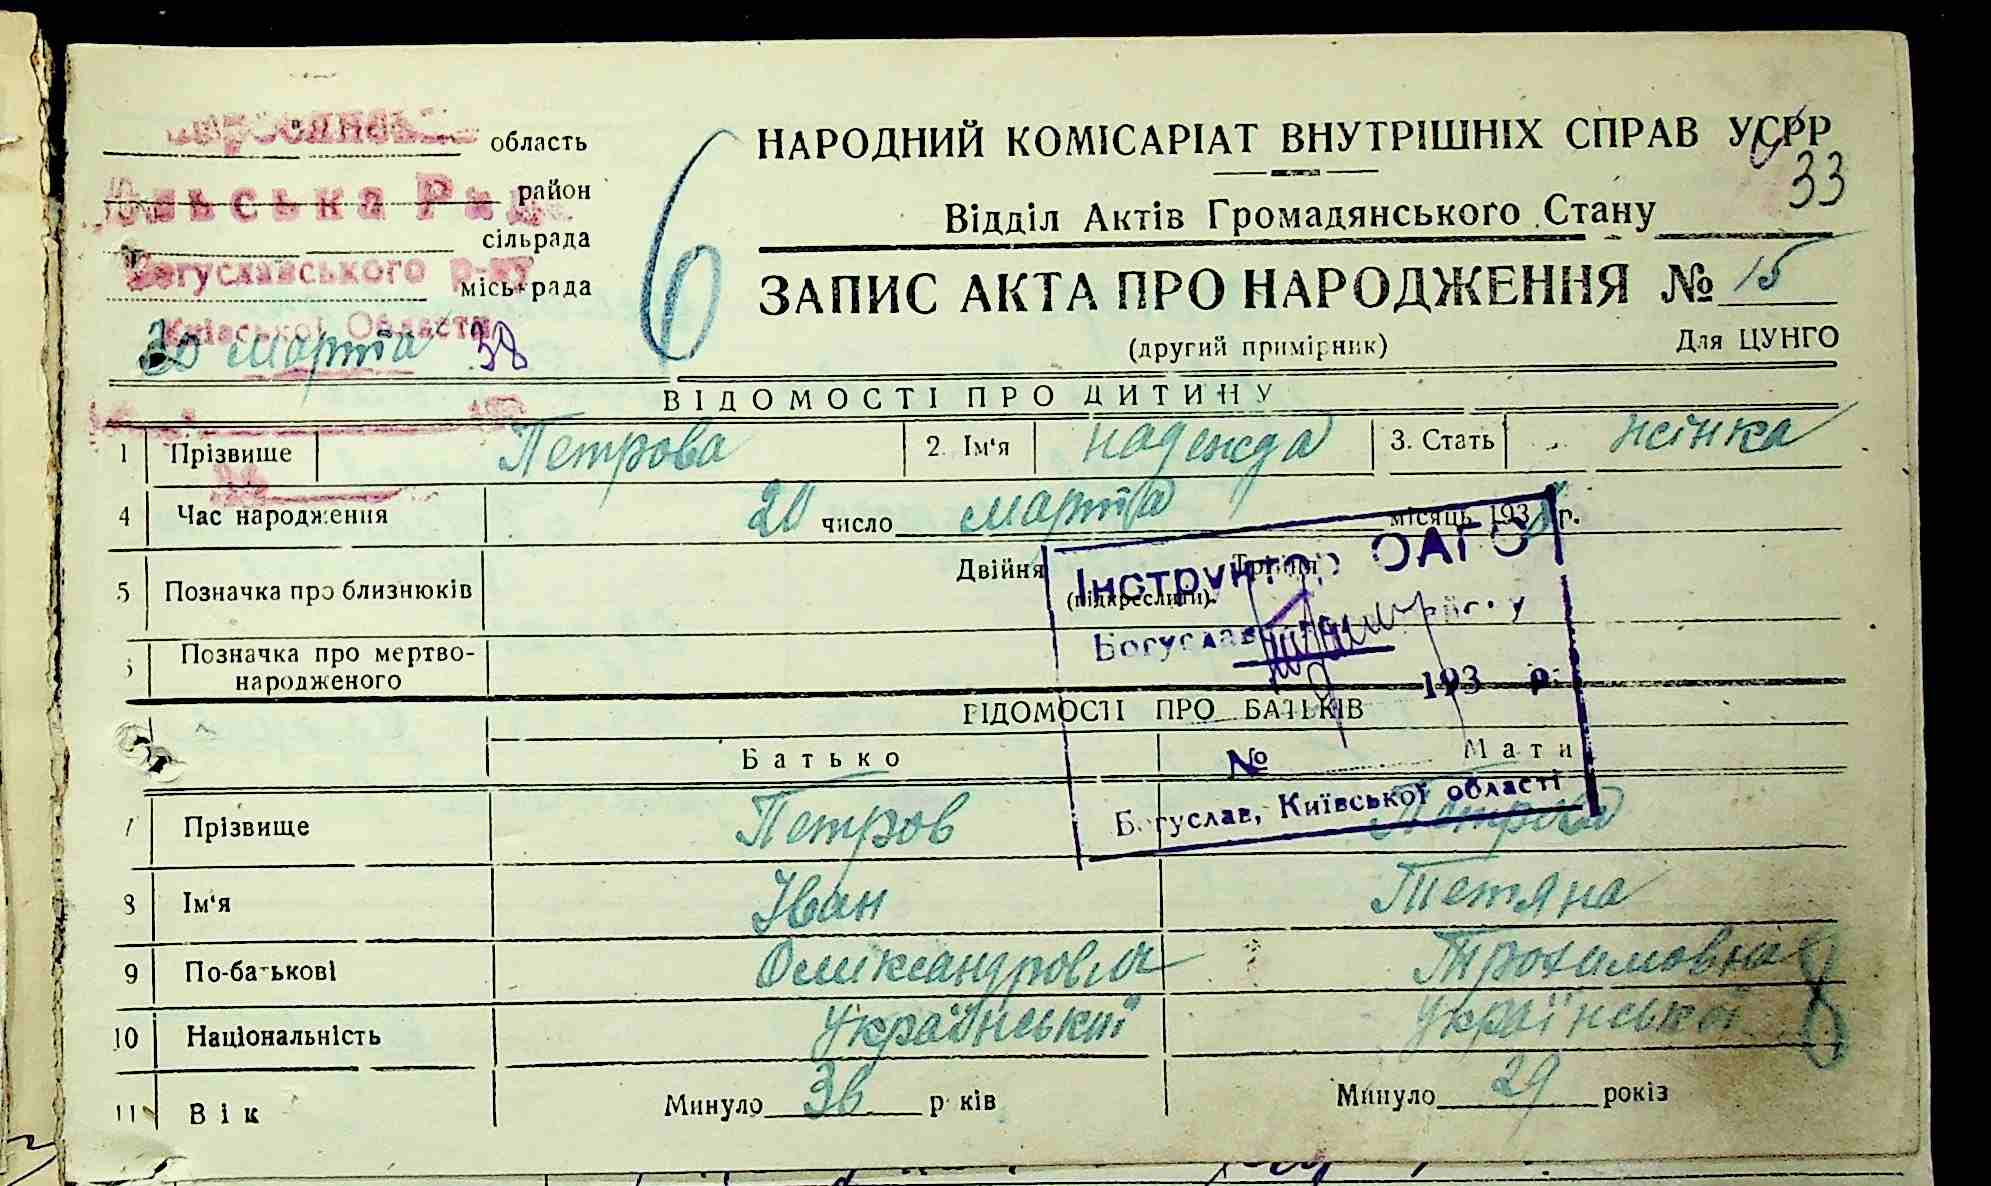 область
НАРОДНИЙ КОМІСАРІАТ ВНУТРІШНІХ СПРАВ УСРР
33
Сільська Рада
район
Відділ Актів Громадянського Стану
сільрада
Богуславського р-ну
міськрада
6
ЗАПИС АКТА ПРО НАРОДЖЕННЯ № 15
Київської Области
30 марта 38
(другий примірник)
Для ЦУНГО
ВІДОМОСТІ ПРО ДИТИНУ
1 Прізвище Петрова 2. Ім'я Надежда 3. Стать жінка
4 Час народження 20 число марта місяць 193 р.
5 Позначка про близнюків Двійня Трійня
(підкреслити).
Інструктор ОАГС
Богуслав
193 р.
№
Богуслав, Київської області
Позначка про мертво-
народженого
ВІДОМОСТІ ПРО БАТЬКІВ
Батько Мати
7 Прізвище Петров Петрова
8 Ім'я Іван Тетяна
9 По-батькові Олександрович Трохимовна
10 Національність Український Українська
11 Вік Минуло років Минуло 29 років